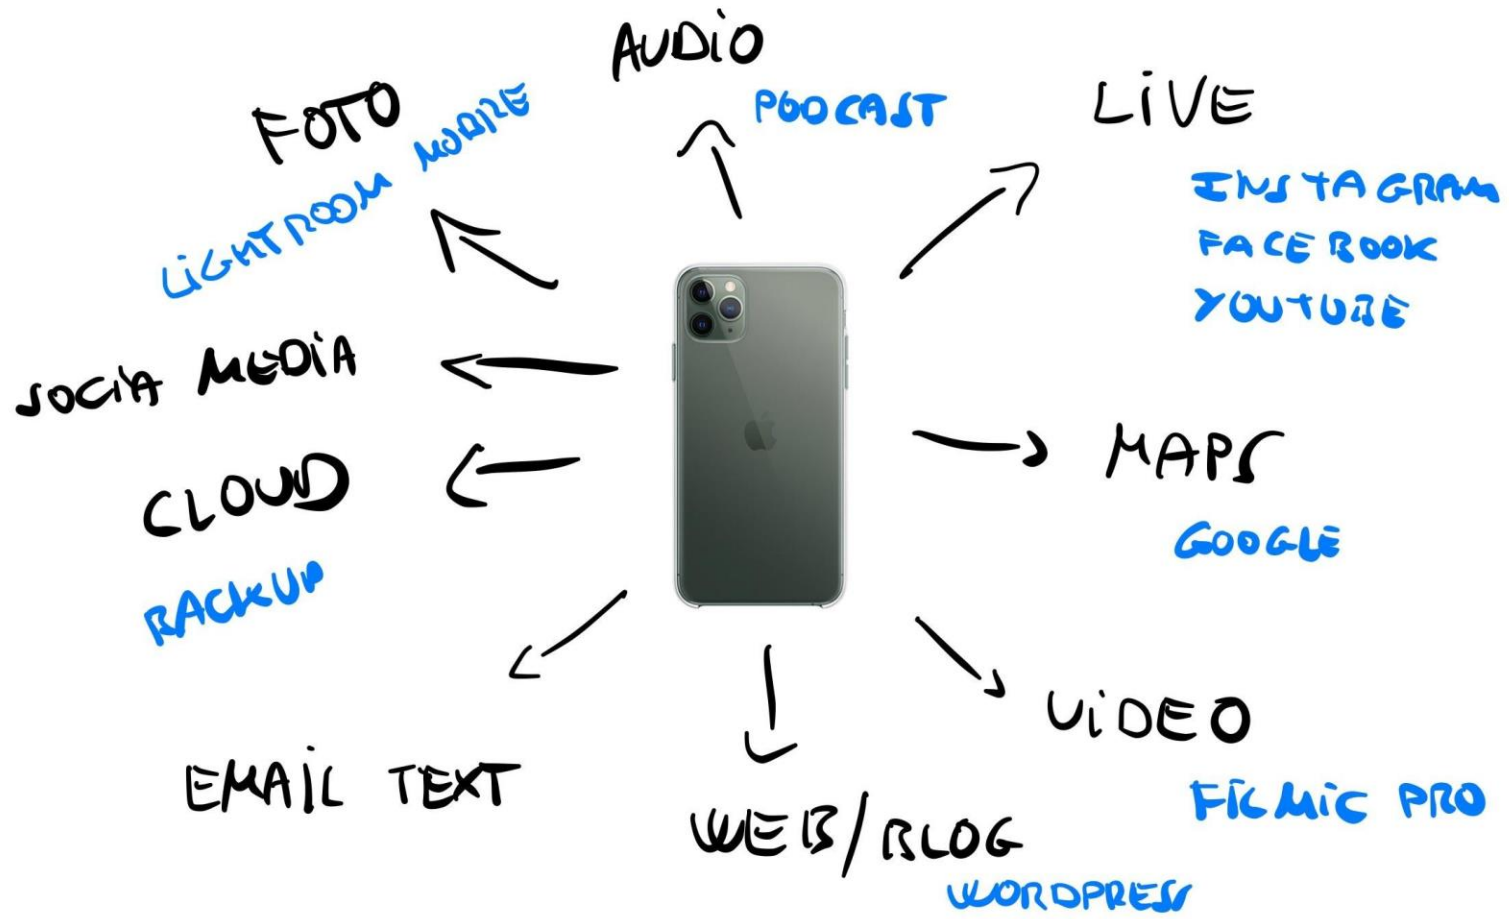 AUDiO
PODCAST
FOTO
LiGHTROOM MOBILE
LiVE
INSTAGRAM
FACEBOOK
YOUTUBE
SOCiA MEDiA
CLOUD
BACKUP
MAPS
GOOGLE
EMAiL TEXT
WEB/BLOG
WORDPRESS
ViDEO
FiLMiC PRO